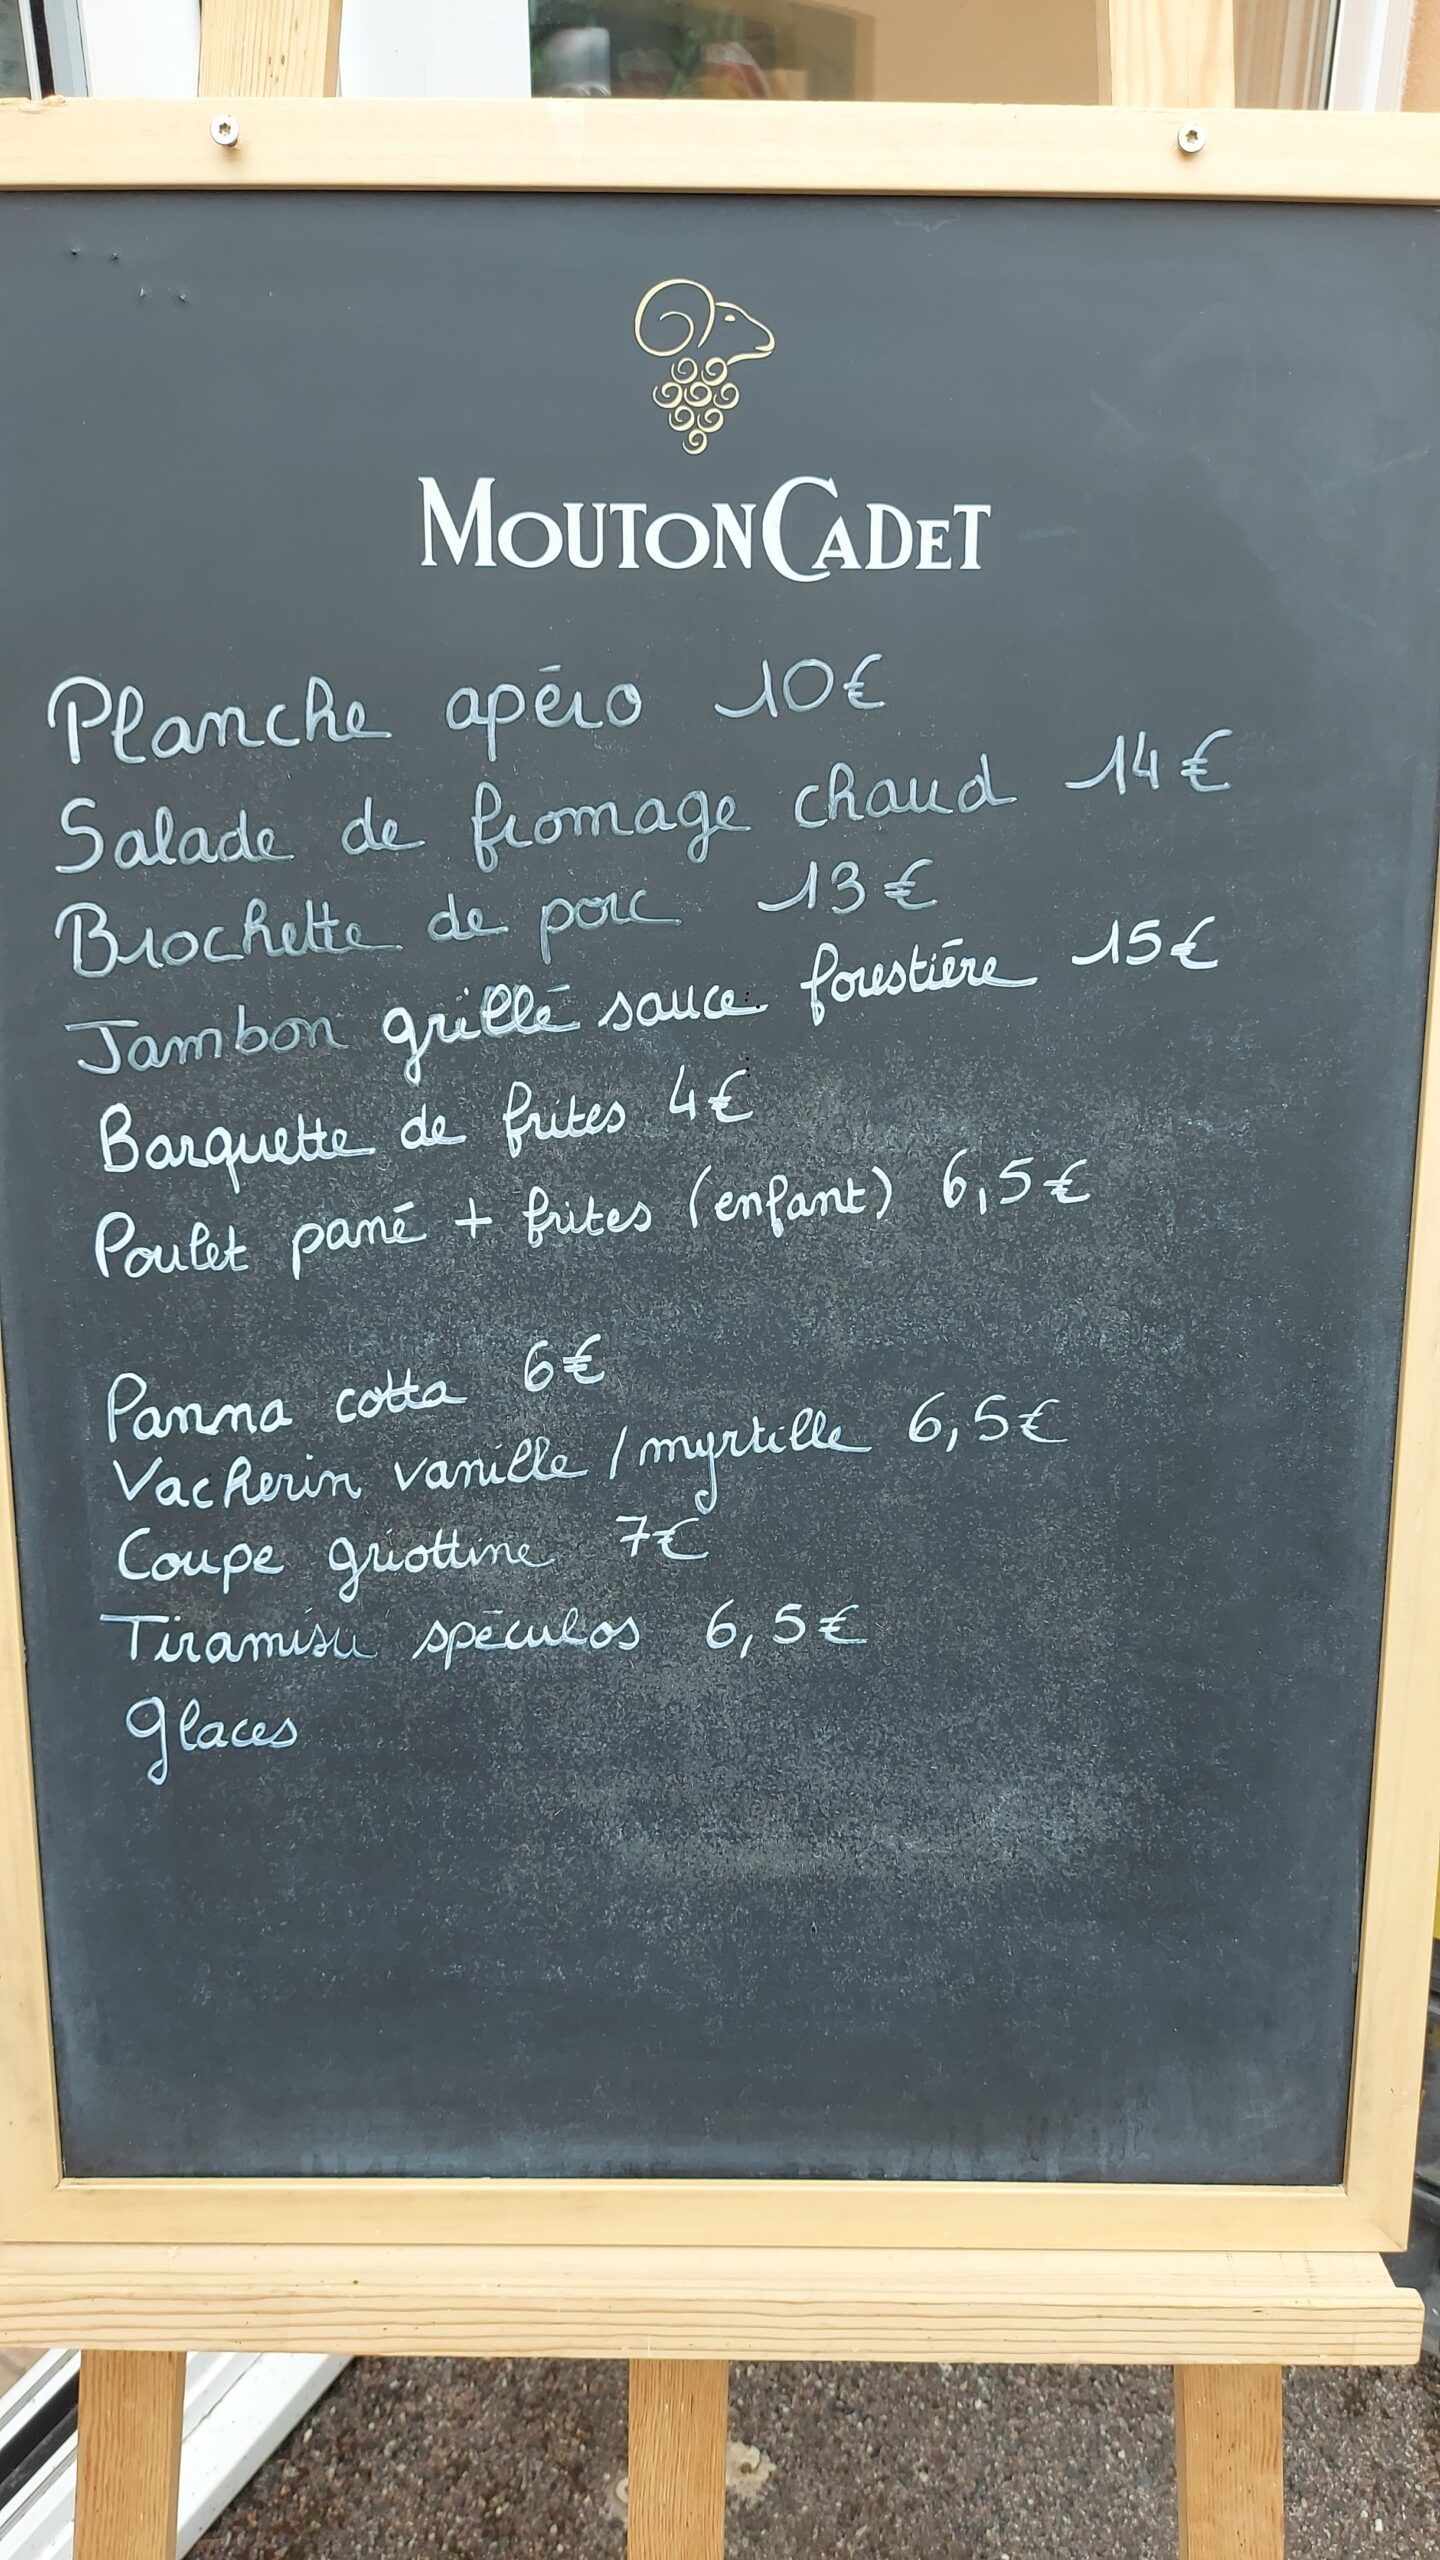 MOUTON CADET
Planche apéro 10€
Salade de fromage chaud 14€
Brochette de porc 13€
Jambon grillé sauce forestière 15€
Barquette de frites 4€
Poulet pané + frites (enfant) 6,5€
Panna cotta 6€
Vacherin vanille / myrtille 6,5€
Coupe griottine 7€
Tiramisu spéculos 6,5€
Glaces